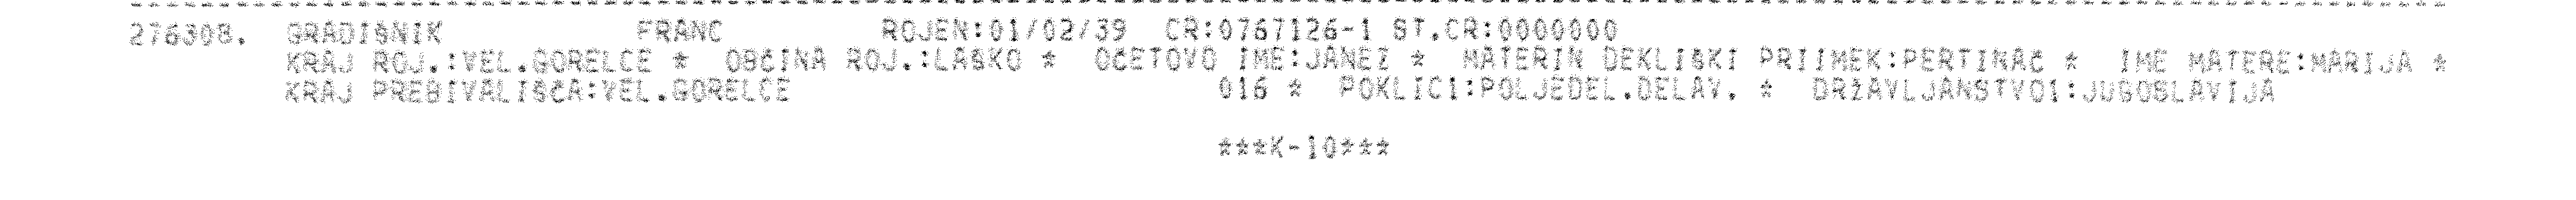 276308. GRADIŠNIK FRANC ROJEN:01/02/39 CR:0767126-1 ST.CR:0000000
KRAJ ROJ.:VEL.GORELCE * OBČINA ROJ.:LAŠKO * OČETOVO IME:JANEZ * MATERIN DEKLIŠKI PRIIMEK:PERTINAČ * IME MATERE:MARIJA *
KRAJ PREBIVALIŠČA:VEL.GORELCE 016 * POKLIC1:POLJEDEL.DELAV. * DRŽAVLJANSTVO1:JUGOSLAVIJA
***K-10***